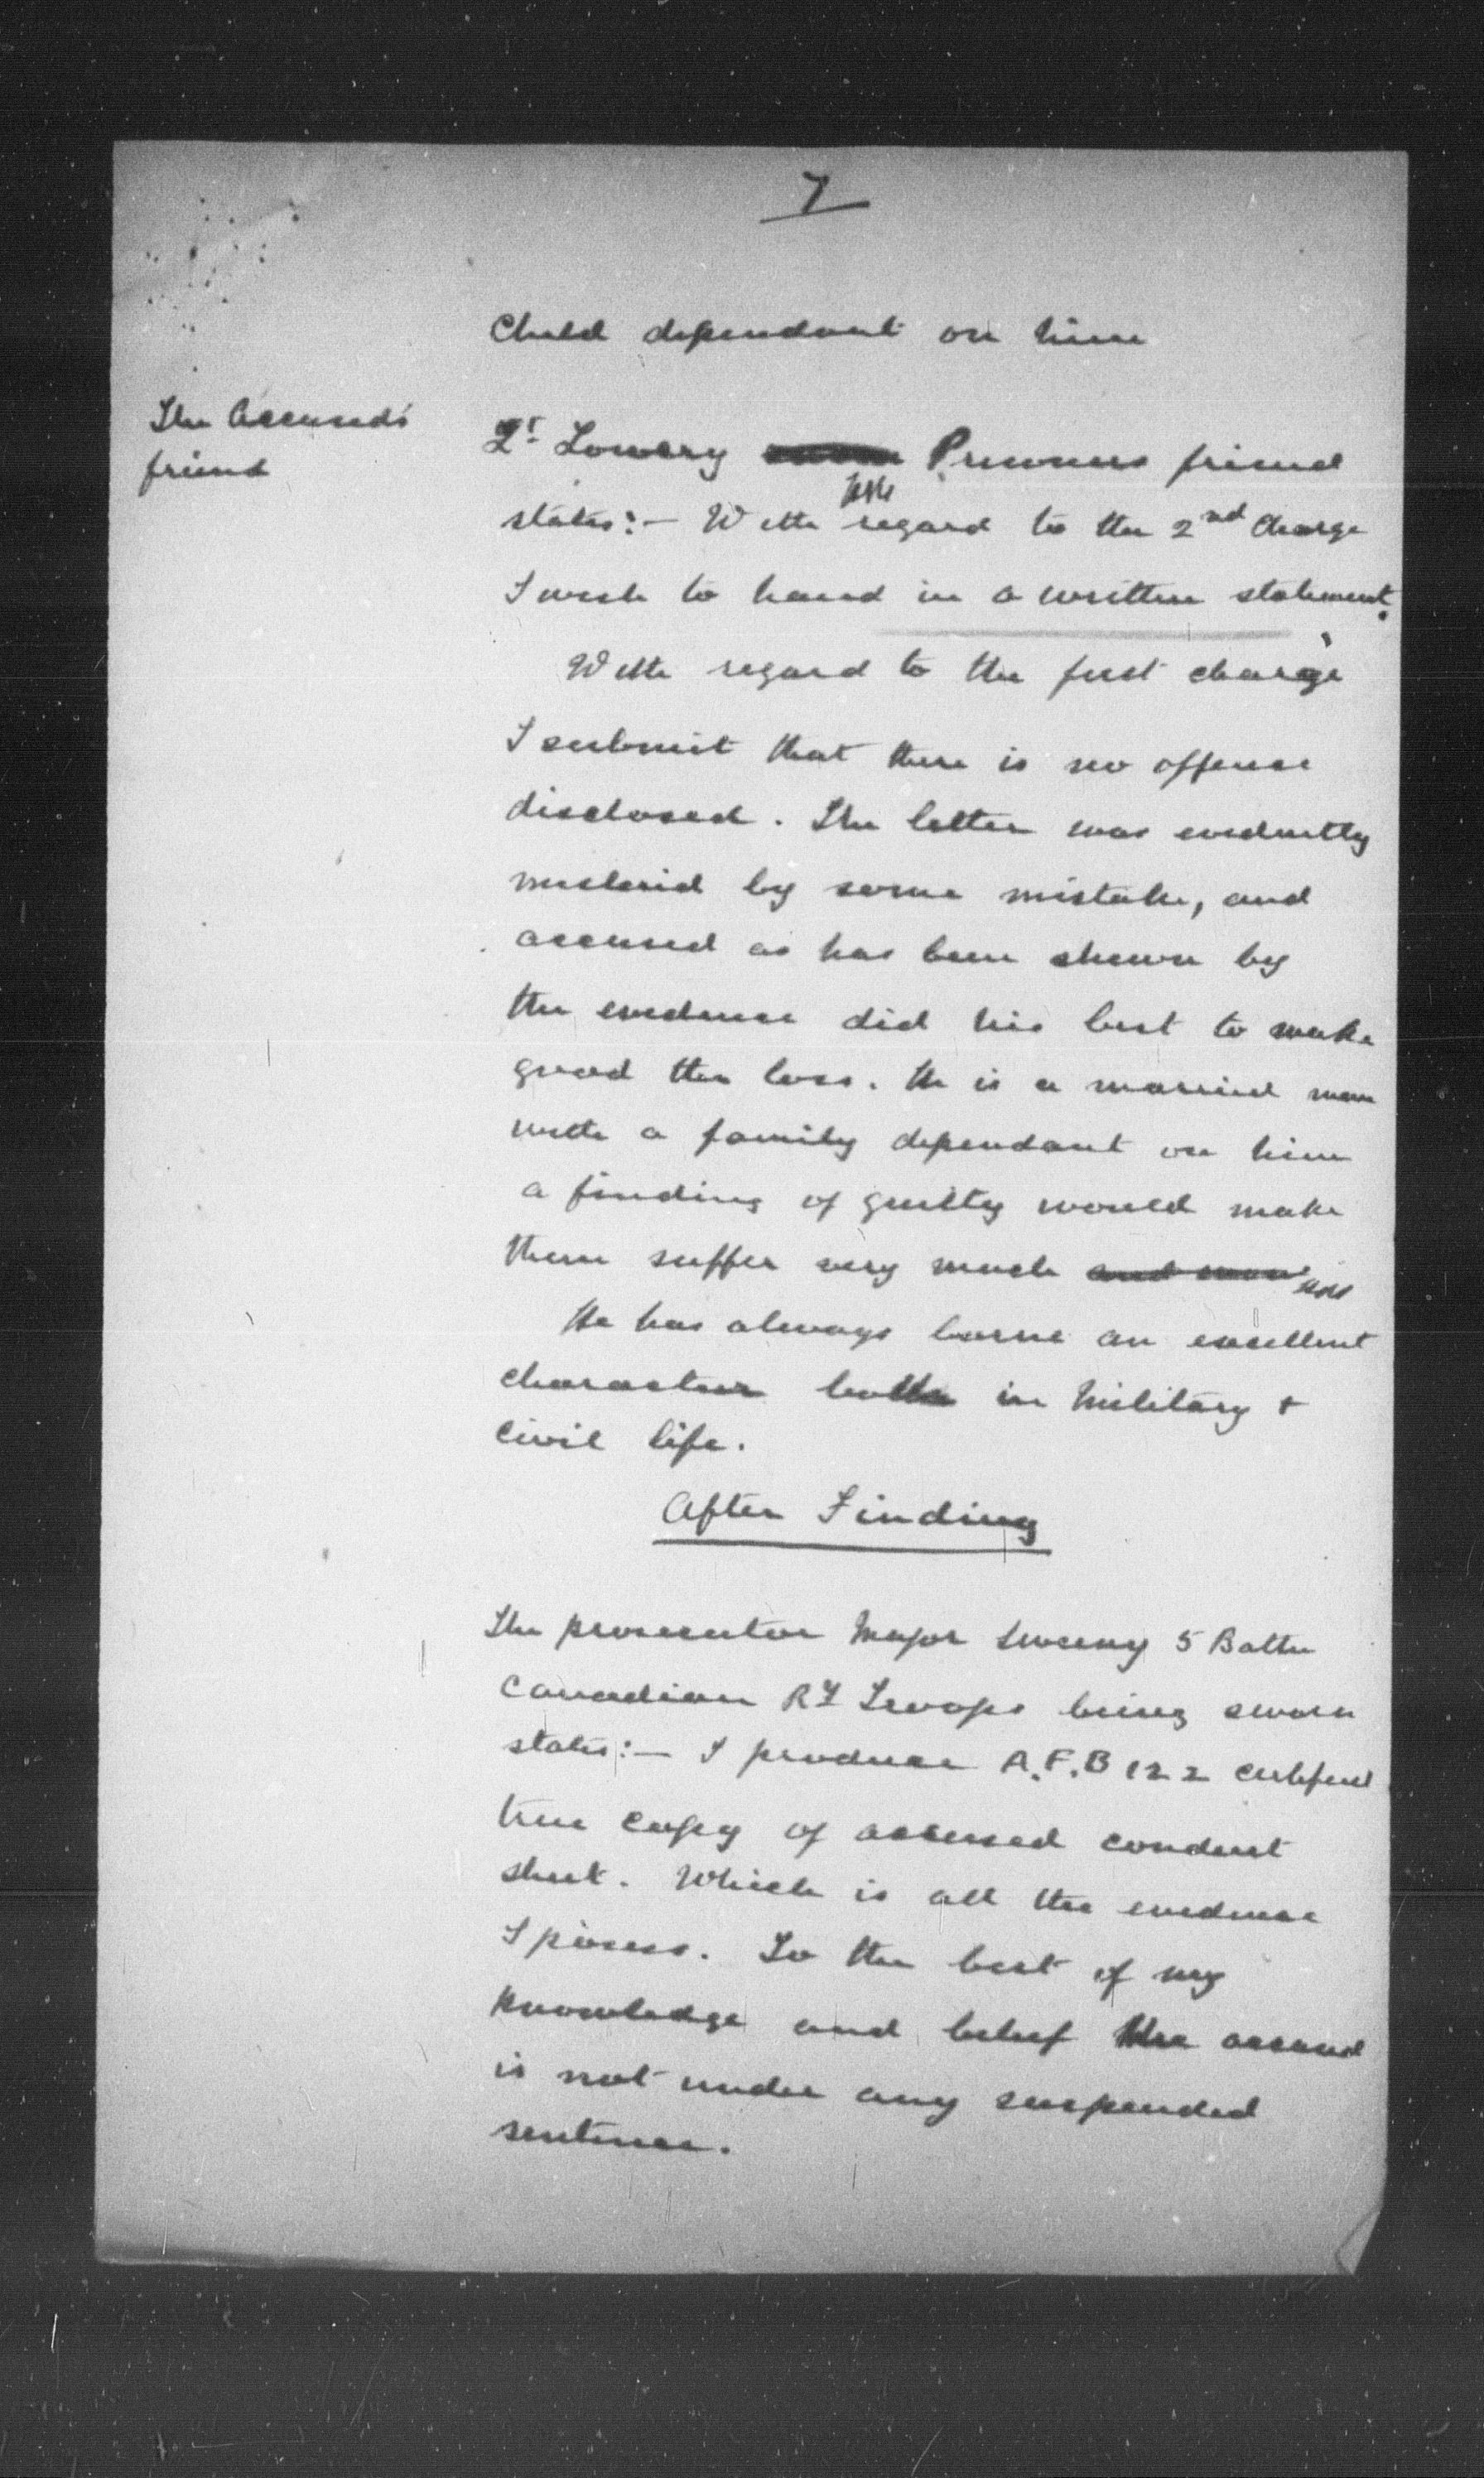 7
Child dependant on him
The Accused's
friend
Lt Lowery Prisoners friend
states:- With regard to the 2nd Charge
I wish to hand in a written statement.
With regard to the first charge
I submit that there is no offense
disclosed. The letter was evidently
mislaid by some mistake, and
accused as has been shewn by
the evidence did his best to make
good the loss. He is a married man
with a family dependant on him
a finding of guilty would make
them suffer very much
He has always borne an excellent
character both in Military &
Civil life.
After Finding
The prosecutor Major Sweeny 5 Battn
Canadian Ry Troops being sworn
states:- I produce A.F.B 122 certified
true copy of accused conduct
sheet. Which is all the evidence
I posess. To the best of my
knowledge and belief the accused
is not under any suspended
sentence.